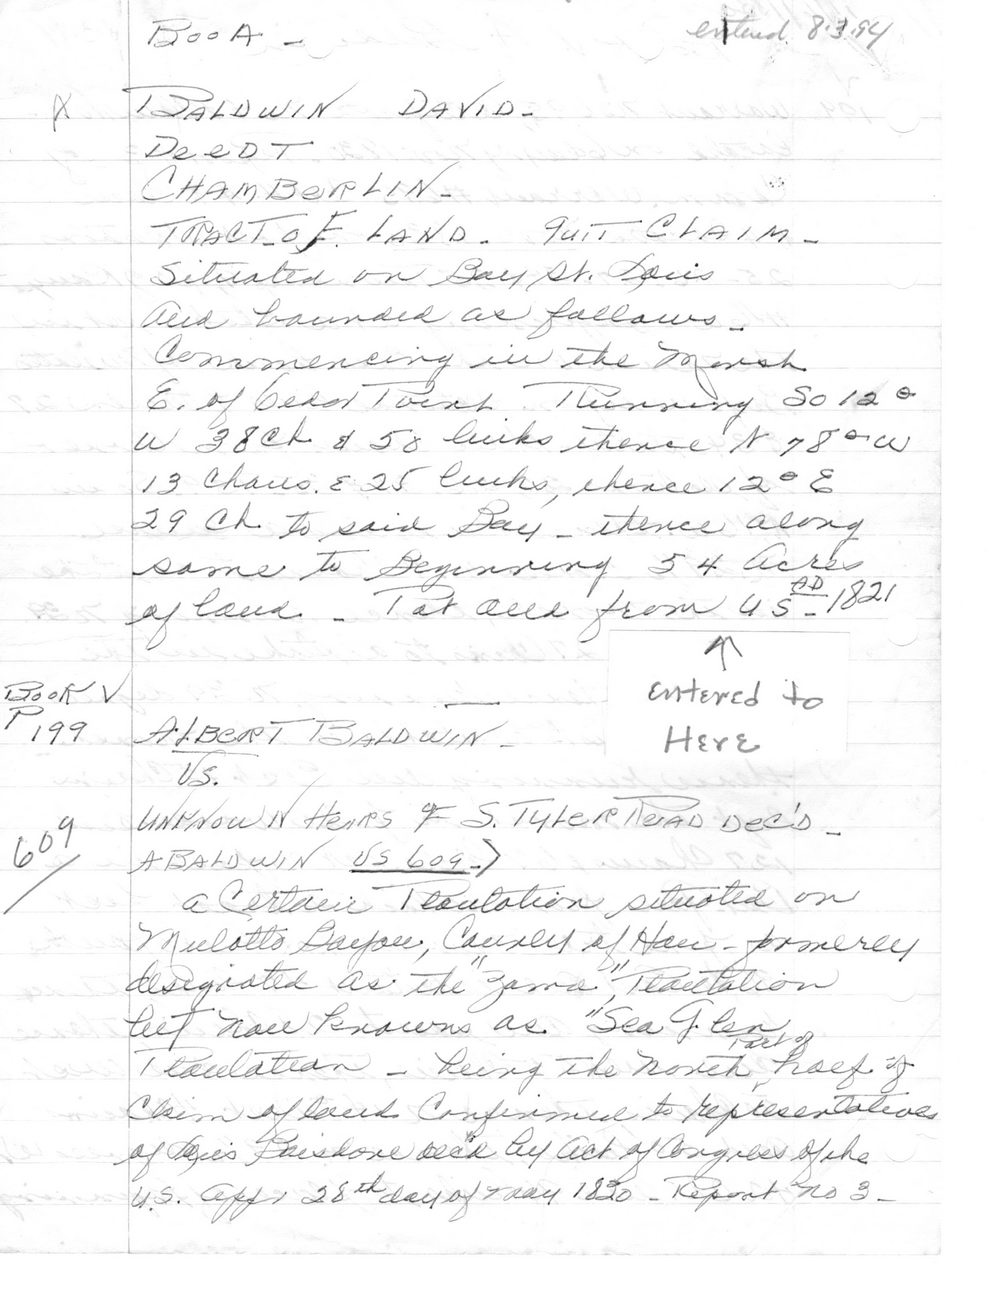 BooA -
entered 8.3.94
X
BALDWIN DAVID -
DeeDT
CHAMBERLIN -
TRACT OF LAND - QUIT CLAIM -
Situated on Bay St. Louis
and bounded as follows -
Commencing in the Marsh
E. of Cedar Point Running So 12°
W 38 Ch & 50 links thence N 78° W
13 Chains & 25 links, thence 12° E
29 Ch to said Bay - thence along
same to Beginning 54 Acres
of land - Pat from US - AD 1821
↑
entered to
Here
Book V
P 199
ALBERT BALDWIN -
VS.
UNKNOWN HEIRS OF S. TYLER READ DEC'D -
609
A BALDWIN VS 609 ->
a Certain Plantation situated on
Mulatto Bayou, County of Han - formerly
designated as the "Zama" Plantation
but now knowns as "Sea Glen
Plantation - being the North part of half of
Claim of land Confirmed to representatives
of Louis Boisdore dec'd by act of Congress of the
U.S. App. 28th day of May 1830 - Report No 3 -